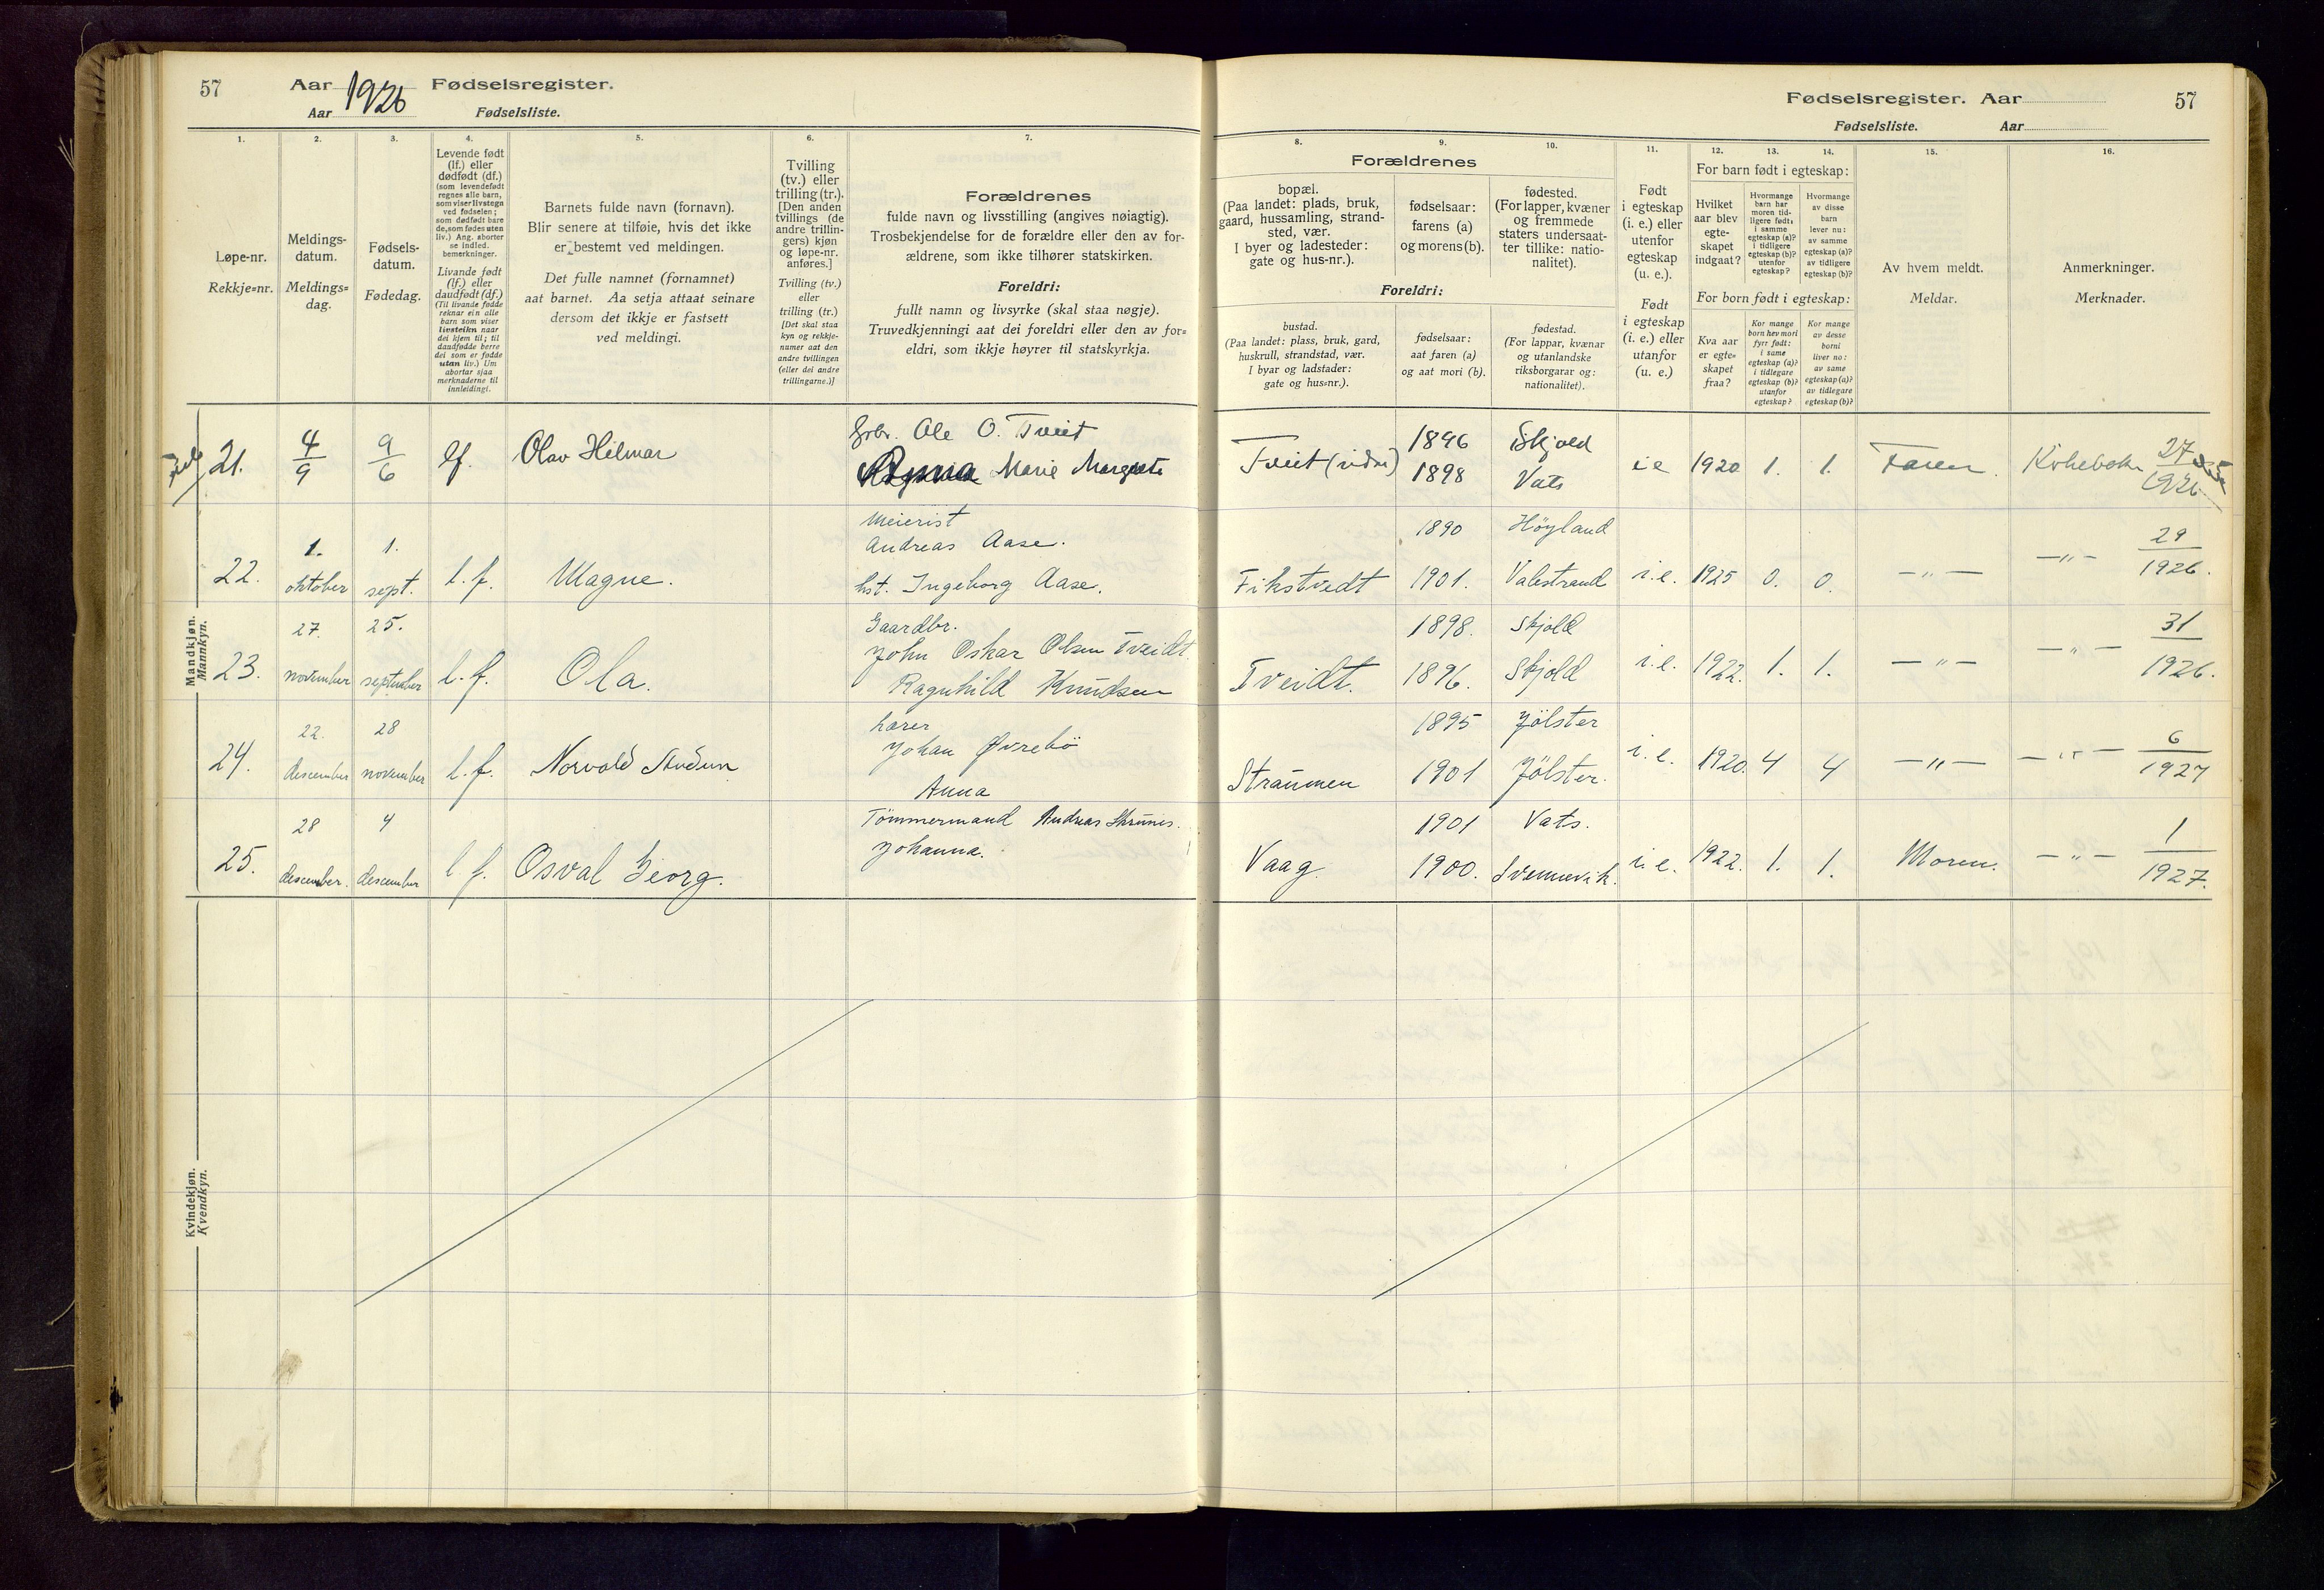 57 Aar 1926 Fødselsregister.
Aar Fødselsliste.
Fødselsregister. Aar 57
Fødselsliste. Aar
1. 2. 3. 4. 5. 6. 7.
Løpe-nr.
Rekkje=nr.
Meldings-
datum.
Meldings=
dag.
Fødsels-
datum.
Fødedag.
Levende født
(lf.) eller
dødfødt (df.)
(som levendefødt
regnes alle barn,
som viser livstegn
ved fødselen;
som dødfødt bare
de, som fødes uten
liv.) Ang. aborter
se indled.
bemerkninger.
Livande født
(lf.) eller
daudfødt (df.)
(Til livande fødde
reknar ein alle
barn som viser
livsteikn naar
dei kjem til; til
daudfødde berre
dei som er fødde
utan liv.) Um
abortar sjaa
merknaderne til
innleidingi.
Barnets fulde navn (fornavn).
Blir senere at tilføie, hvis det ikke
er bestemt ved meldingen.
Det fulle namnet (fornamnet)
aat barnet. Aa setja attaat seinare
dersom det ikkje er fastsett
ved meldingi.
Tvilling
(tv.) eller
trilling (tr.).
[Den anden
tvillings (de
andre trillin-
gers) kjøn
og løpe-nr.
anføres.]
Tvilling (tv.)
eller
trilling (tr.)
[Det skal staa
kyn og rekkje-
numer aat den
andre tvillingen
(eller dei andre
trillingarne.)]
Forældrenes
fulde navn og livsstilling (angives nøiagtig).
Trosbekjendelse for de forældre eller den av for-
ældrene, som ikke tilhører statskirken.
Foreldri:
fullt namn og livsyrke (skal staa nøgje).
Truvedkjenningi aat dei foreldri eller den av for=
eldri, som ikkje høyrer til statskyrkja.
8. 9. 10. 11. 12. 13. 14. 15. 16.
Forældrenes
bopæl.
(Paa landet: plads, bruk,
gaard, hussamling, strand-
sted, vær.
I byer og ladesteder:
gate og hus-nr.).
fødselsaar:
farens (a)
og morens (b).
fødested.
(For lapper, kvæner
og fremmede
staters undersaat-
ter tillike: natio-
nalitet).
Foreldri:
bustad.
(Paa landet: plass, bruk, gard,
huskrull, strandstad, vær.
I byar og ladstader:
gate og hus=nr.).
fødselsaar:
aat faren (a)
og aat mori (b).
fødestad.
(For lappar, kvænar
og utanlandske
riksborgarar og:
nationalitet).
Født
i egteskap
(i. e.) eller
utenfor
egteskap
(u. e.).
Født
i egteskap
(i. e.) eller
utanfor
(u. e.)
For barn født i egteskap:
Hvilket
aar blev
egte-
skapet
indgaat?
Hvormange
barn har
moren tid-
ligere født:
i samme
egteskap (a)?
i tidligere
egteskap (b)?
utenfor
egteskap?
Hvormange
av disse
barn
lever nu:
av samme
egteskap (a)?
av tidligere
egteskap (b)?
For born født i egteskap:
Kva aar
er egte=
skapet
fraa?
Kor mange
born hev mori
fyrr født:
i same
egteskap (a)?
i tidlegare
egteskap (b)?
utanfor
egteskap?
Kor mange
av desse
borni
liver no:
av same
egteskap (a)?
av tidlegare
egteskap (b)?
Av hvem meldt.
Meldar.
Anmerkninger.
Merknader.
Mandkjøn.
Mannkyn.
21. 4/9 9/6 lf. Olav Hilmar Gbr. Ole O. Tveit
Marie Margrete
Tveit 1896 Skjold
1898 Vats i e 1920 1. 1. Faren 27/1926
22. 1. oktober 1. sept. l. f. Magne. Meierist
Andreas Aase.
hst. Ingeborg Aase.
Fikstvedt 1890 Höyland
1901. Valestrand i. e. 1925 0. 0. —"— —"— 29/1926.
23. 27. november 25. september l. f. Ola. Gaardbr.
John Oskar Olsen Tveidt
Ragnhild Knudsen
Tveidt. 1898. Skjold
1896. Skjold i. e. 1922. 1. 1. —"— —"— 31/1926.
24. 22. descember 28 november l. f. Norvald Audun Lærer
Johan Øvrebö
Anna
Straumen 1895 Jölster
1901 Jölster. i. e. 1920. 4 4 —"— —"— 6/1927
25. 28 descember. 4 descember l. f. Osval Georg. Tömmermand Andreas
Johanna.
Vaag. 1901 Vats.
1900. i. e. 1922. 1. 1. Moren. —"— 1/1927.
Kvindekjøn.
Kvendkyn.